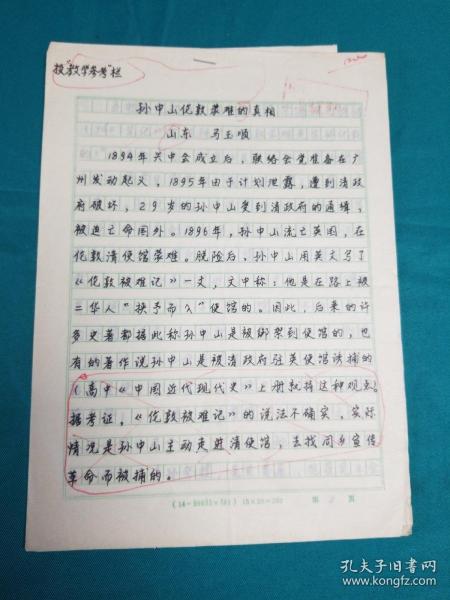 投"教学参考"栏
孙中山伦敦蒙难的真相
山东 马玉顺
1894年兴中会成立后，联络会党准备在广
州发动起义，1895年由于计划泄露，遭到清政
府破坏，29岁的孙中山受到清政府的通缉，
被迫亡命国外。1896年，孙中山流亡英国，在
伦敦清使馆蒙难。脱险后，孙中山用英文写了
《伦敦被难记》一文，文中称：他是在路上被
二华人"挟予而入"使馆的。因此，后来的许
多史著都据此称孙中山是被绑架到使馆的，也
有的著作说孙中山是被清政府驻英使馆诱捕的
（高中《中国近代现代史》上册就持这种观点。
据考证，《伦敦被难记》的说法不确实，实际
情况是孙中山主动走进清使馆，去找同乡宣传
革命而被捕的。
15×20=300
第 页
孔夫子旧书网
www.kongfz.com